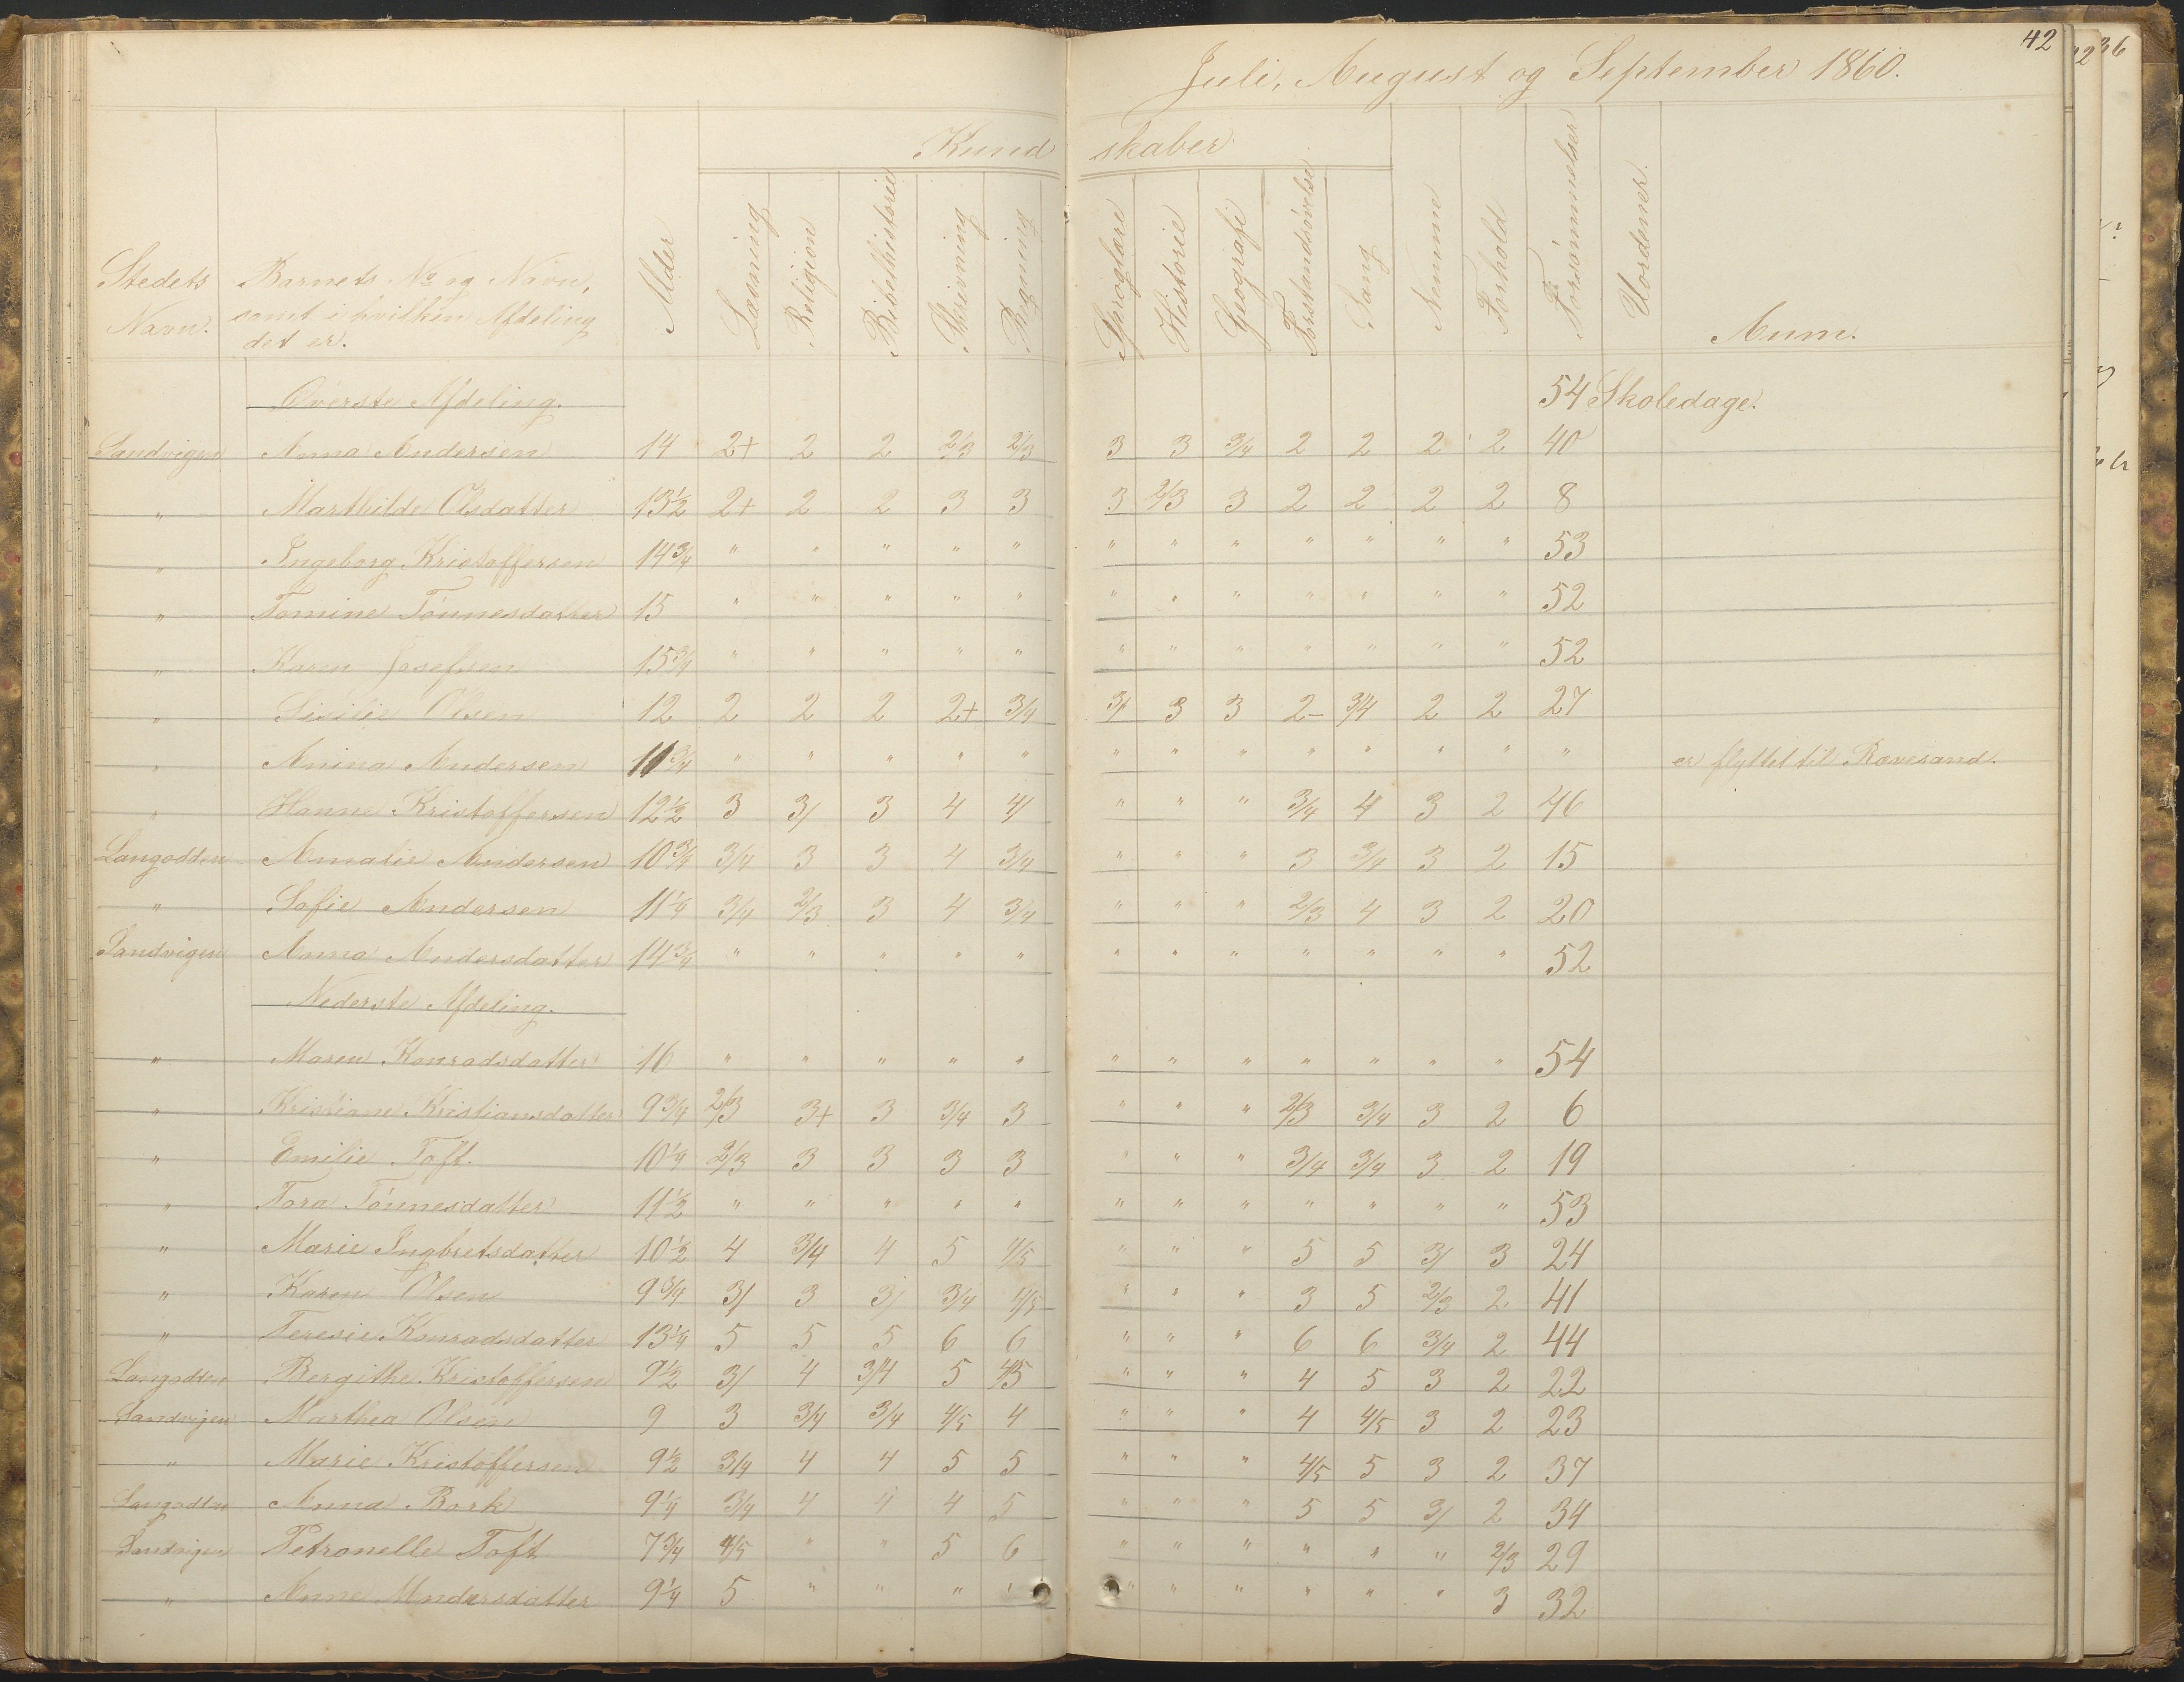 42
36
Juli, August og September 1860.
Kundskaber
Stedets Navn. Barnets No og Navn, samt i hvilken Afdeling det er. Alder Læsning Religion Bibelhistorie Skrivning Regning Sproglære Historie Geografi Forstandsøvelse Sang Nemme Forhold Forsømmelser Uordener. Anm.
Øverste Afdeling. 54 Skoledage.
Sandvigen Anna Andersen 14 2+ 2 2 2/3 2/3 3 3 3/4 2 2 2 2 40
" Marthilde Olsdatter 13½ 2+ 2 2 3 3 3 2/3 3 2 2 2 2 8
" Ingeborg Kristoffersen 14¾ " " " " " " " " " " " " 53
" Tomine Tönnesdatter 15 " " " " " " " " " " " " 52
" Karen Josefsen 15¾ " " " " " " " " " " " " 52
" Sisilie Olsen 12 2 2 2 2+ 3/4 3/ 3 3 2- 3/4 2 2 27
" Anina Andersen 11¾ " " " " " " " " " " " " " er flyttet til Rævesand.
" Hanne Kristoffersen 12½ 3 3/ 3 4 4/ " " " 3/4 4 3 2 46
Langodden Amalie Andersen 10¾ 3/4 3 3 4 3/4 " " " 3 3/4 3 2 15
" Sofie Andersen 11¼ 3/4 2/3 3 4 3/4 " " " 2/3 4 3 2 20
Sandvigen Anna Andersdatter 14¾ " " " " " " " " " " " " 52
Nederste Afdeling.
" Maren Konradsdatter 16 " " " " " " " " " " " " 54
" Kristiane Kristiansdatter 9¾ 2/3 3+ 3 3/4 3 " " " 2/3 3/4 3 2 6
" Emilie Toft. 10¼ 2/3 3 3 3 3 " " " 3/4 3/4 3 2 19
" Tora Tönnesdatter 11½ " " " " " " " " " " " " 53
" Marie Ingbretsdatter 10½ 4 3/4 4 5 4/5 " " " 5 5 3/ 3 24
" Karen Olsen 9¾ 3/ 3 3/ 3/4 4/5 " " " 3 5 2/3 2 41
" Teresie Konradsdatter 13¼ 5 5 5 6 6 " " " 6 6 3/4 2 44
Langodden Bergithe Kristoffersen 9½ 3/ 4 3/4 5 4/5 " " " 4 5 3 2 22
Sandvigen Marthea Olsen 9 3 3/4 3/4 4/5 4 " " " 4 4/5 3 2 23
" Marie Kristoffersen 9½ 3/4 4 4 5 5 " " " 4/5 5 3 2 37
Langodden Anna Bork 9¼ 3/4 4 4 4 5 " " " 5 5 3/ 2 34
Sandvigen Petronelle Toft 7¾ 4/5 " " 5 6 " " " " " " 2/3 29
" Anne Andersdatter 9¼ 5 " " " " " " " " " " 3 32